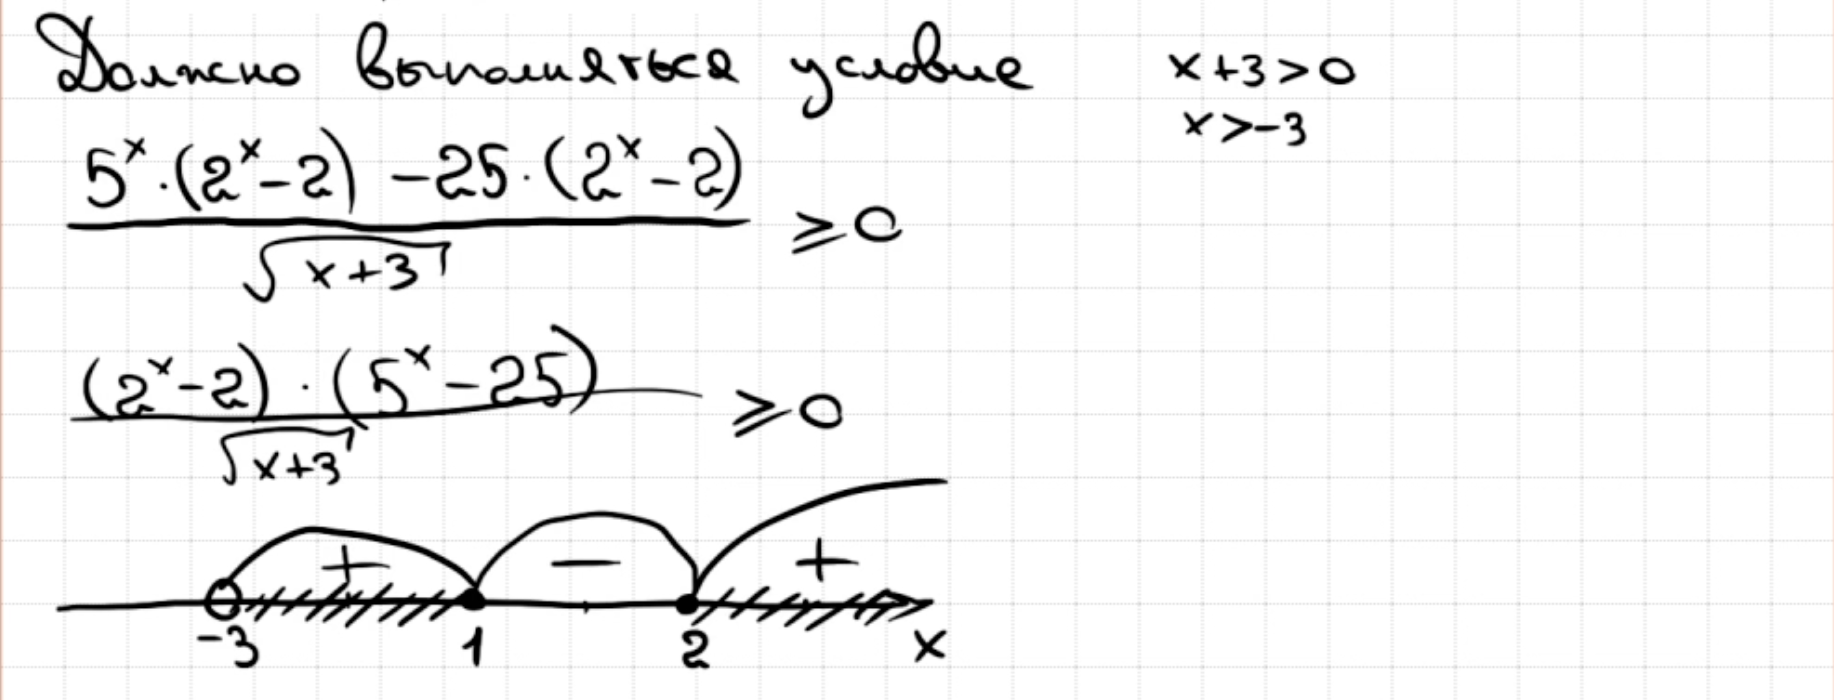 Должно выполняться условие x+3>0
x>-3
5^x·(2^x-2)-25·(2^x-2)
≥0
√(x+3)
(2^x-2)·(5^x-25)
≥0
√(x+3)
+ − +
-3 1 2 x